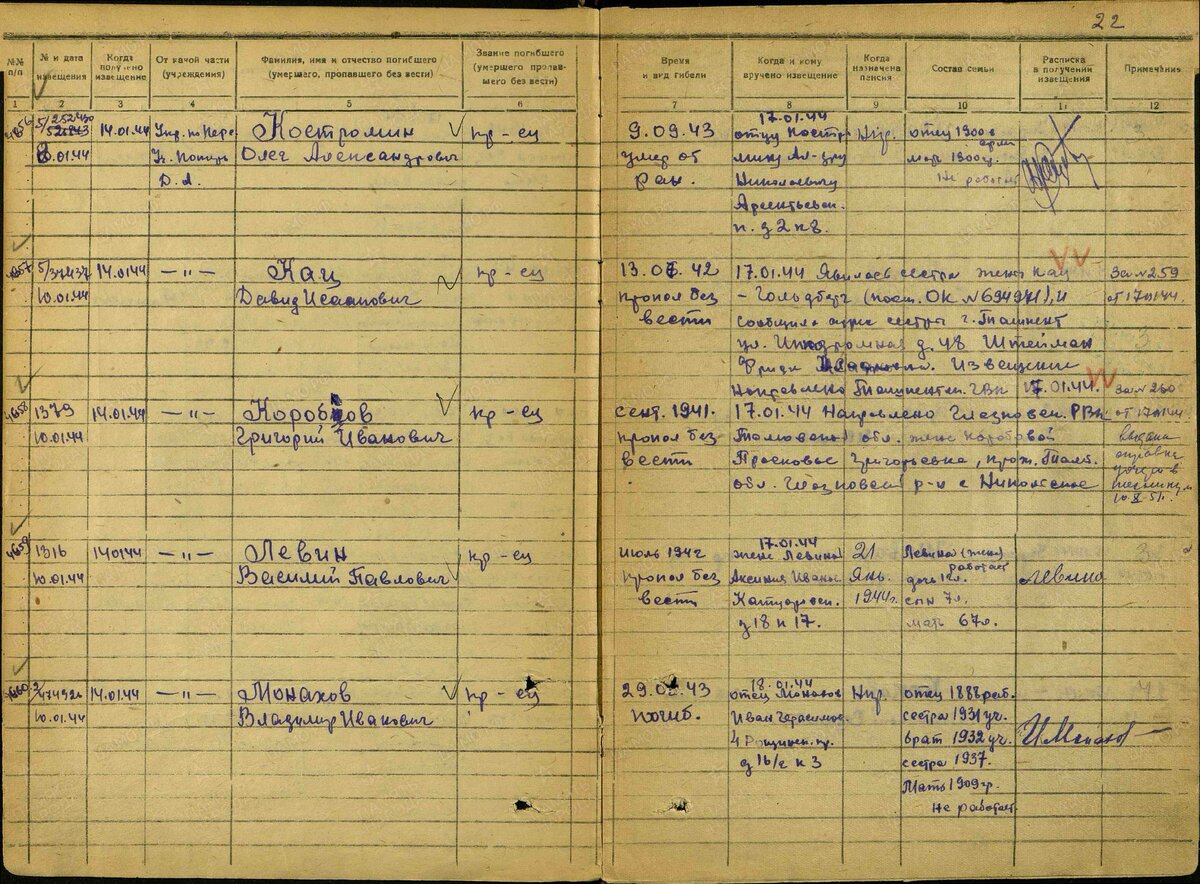 22
№№ п/п
№ и дата извещения
Когда получено извещение
От какой части (учреждения)
Фамилия, имя и отчество погибшего (умершего, пропавшего без вести)
Звание погибшего (умершего пропавшего без вести)
Время и вид гибели
Когда и кому вручено извещение
Когда назначена пенсия
Состав семьи
Расписка в получении извещения
Примечание
1 2 3 4 5 6 7 8 9 10 11 12
4656 5/252430 14.01.44 Упр. по Кр-ец
10.01.44
Д. А.
Костромин
Олег Александрович
кр-ец
9.09.43
умер от
ран.
17.01.44
отцу Костро
мину Ал-дру
Николаевичу
п. д 2 к 8.
Нпр.
отец 1900 г
мать 1900 г.
Не работает
4657 5/37437 14.01.44 —"—
10.01.44
Кац
Давид Исаакович
кр-ец
13.07.42
пропал без
вести
17.01.44 Явилась сестра жены Кац
– Гольдберг (посп. ОК №694971), и
сообщила адрес сестры г. Ташкент
ул. Ипподромная д. 48 Штейман
Фрида Извещение
Направлено Ташкентск. ГВк 17.01.44.
За № 259
от 17.01.44
3
4658 1379 14.01.44 —"—
10.01.44
Коробков
Григорий Иванович
кр-ец
сент. 1941.
пропал без
вести
17.01.44 Направлено Глазковск. РВк
обл. жене Коробовой
Прасковье Григорьевне, прож. Тамб.
обл. Глазковский р-н с Никольское
За № 260
от 17.01.44
выдана
справка
дочери в
техникум
10.X-51г.
4659 1316 14.01.44 —"—
10.01.44
Левин
Василий Павлович
кр-ец
Июль 1942
пропал без
вести
17.01.44
жене Левиной
Аксиния Иванов
д 18 к 17.
21
Янв.
1944г.
Левина (жена)
работает
сын 7 л.
мать 67 л.
Левина
3
4660 2/474926 14.01.44 —"—
10.01.44
Монахов
Владимир Иванович
кр-ец
погиб.
18.01.44
отец Монахов
Иван Герасимов.
4 Рощинск. пр.
д 16/2 к 3
Нпр.
отец 1888 раб.
сестра 1931 уч.
брат 1932 уч.
сестра 1937.
Мать 1909 гр.
Не работает
И Монахов